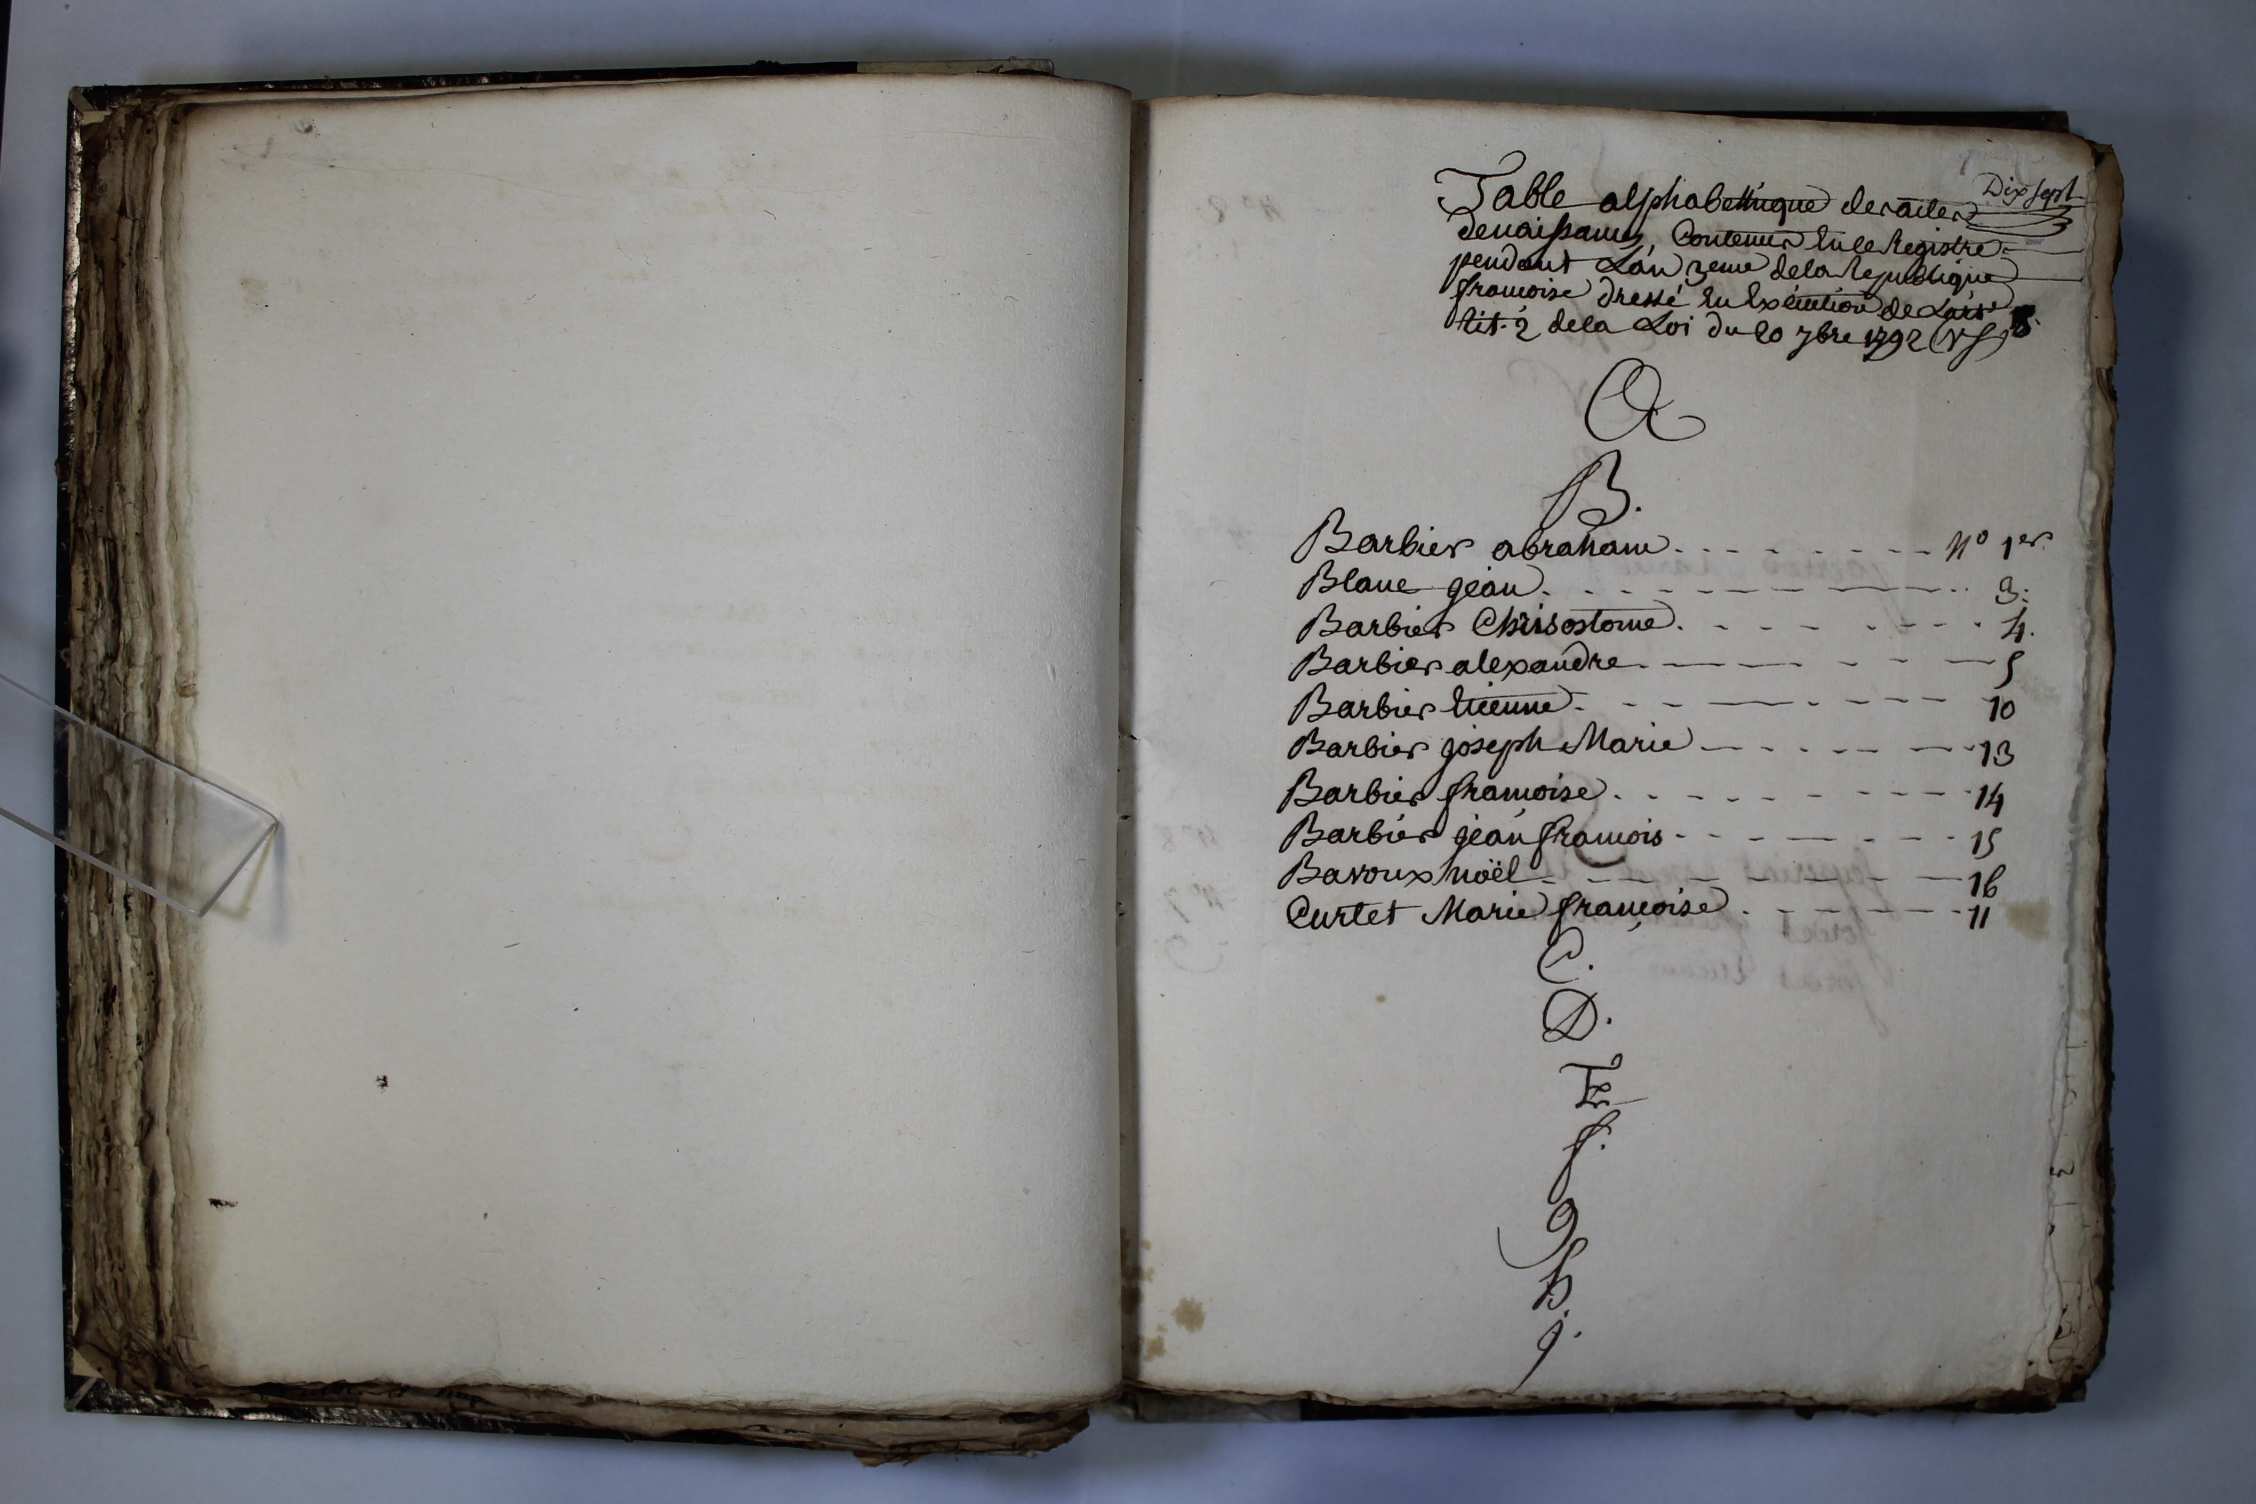 Dix sept
Table alphabettique des actes
de naissances, Contenus En ce Registre
pendant L'an 3eme de la Republique
francoise dressé En Exécution de L'art. 8.
tit. 2 de la Loi du 20 7bre 1792 (VS)
A
B.
Barbier abraham - - - - - - - - N° 1er.
Blanc jean - - - - - - - - - 3.
Barbier Chrisostome - - - - - - - 4.
Barbier alexandre - - - - - - - 5
Barbier Etienne - - - - - - - - 10
Barbier joseph Marie - - - - - - - 13
Barbier francoise - - - - - - - - 14
Barbier jean francois - - - - - - - 15
Bavoux noël - - - - - - - - - 16
Curtet Marie françoise - - - - - - 11
C.
D.
E
f.
g
h.
j.